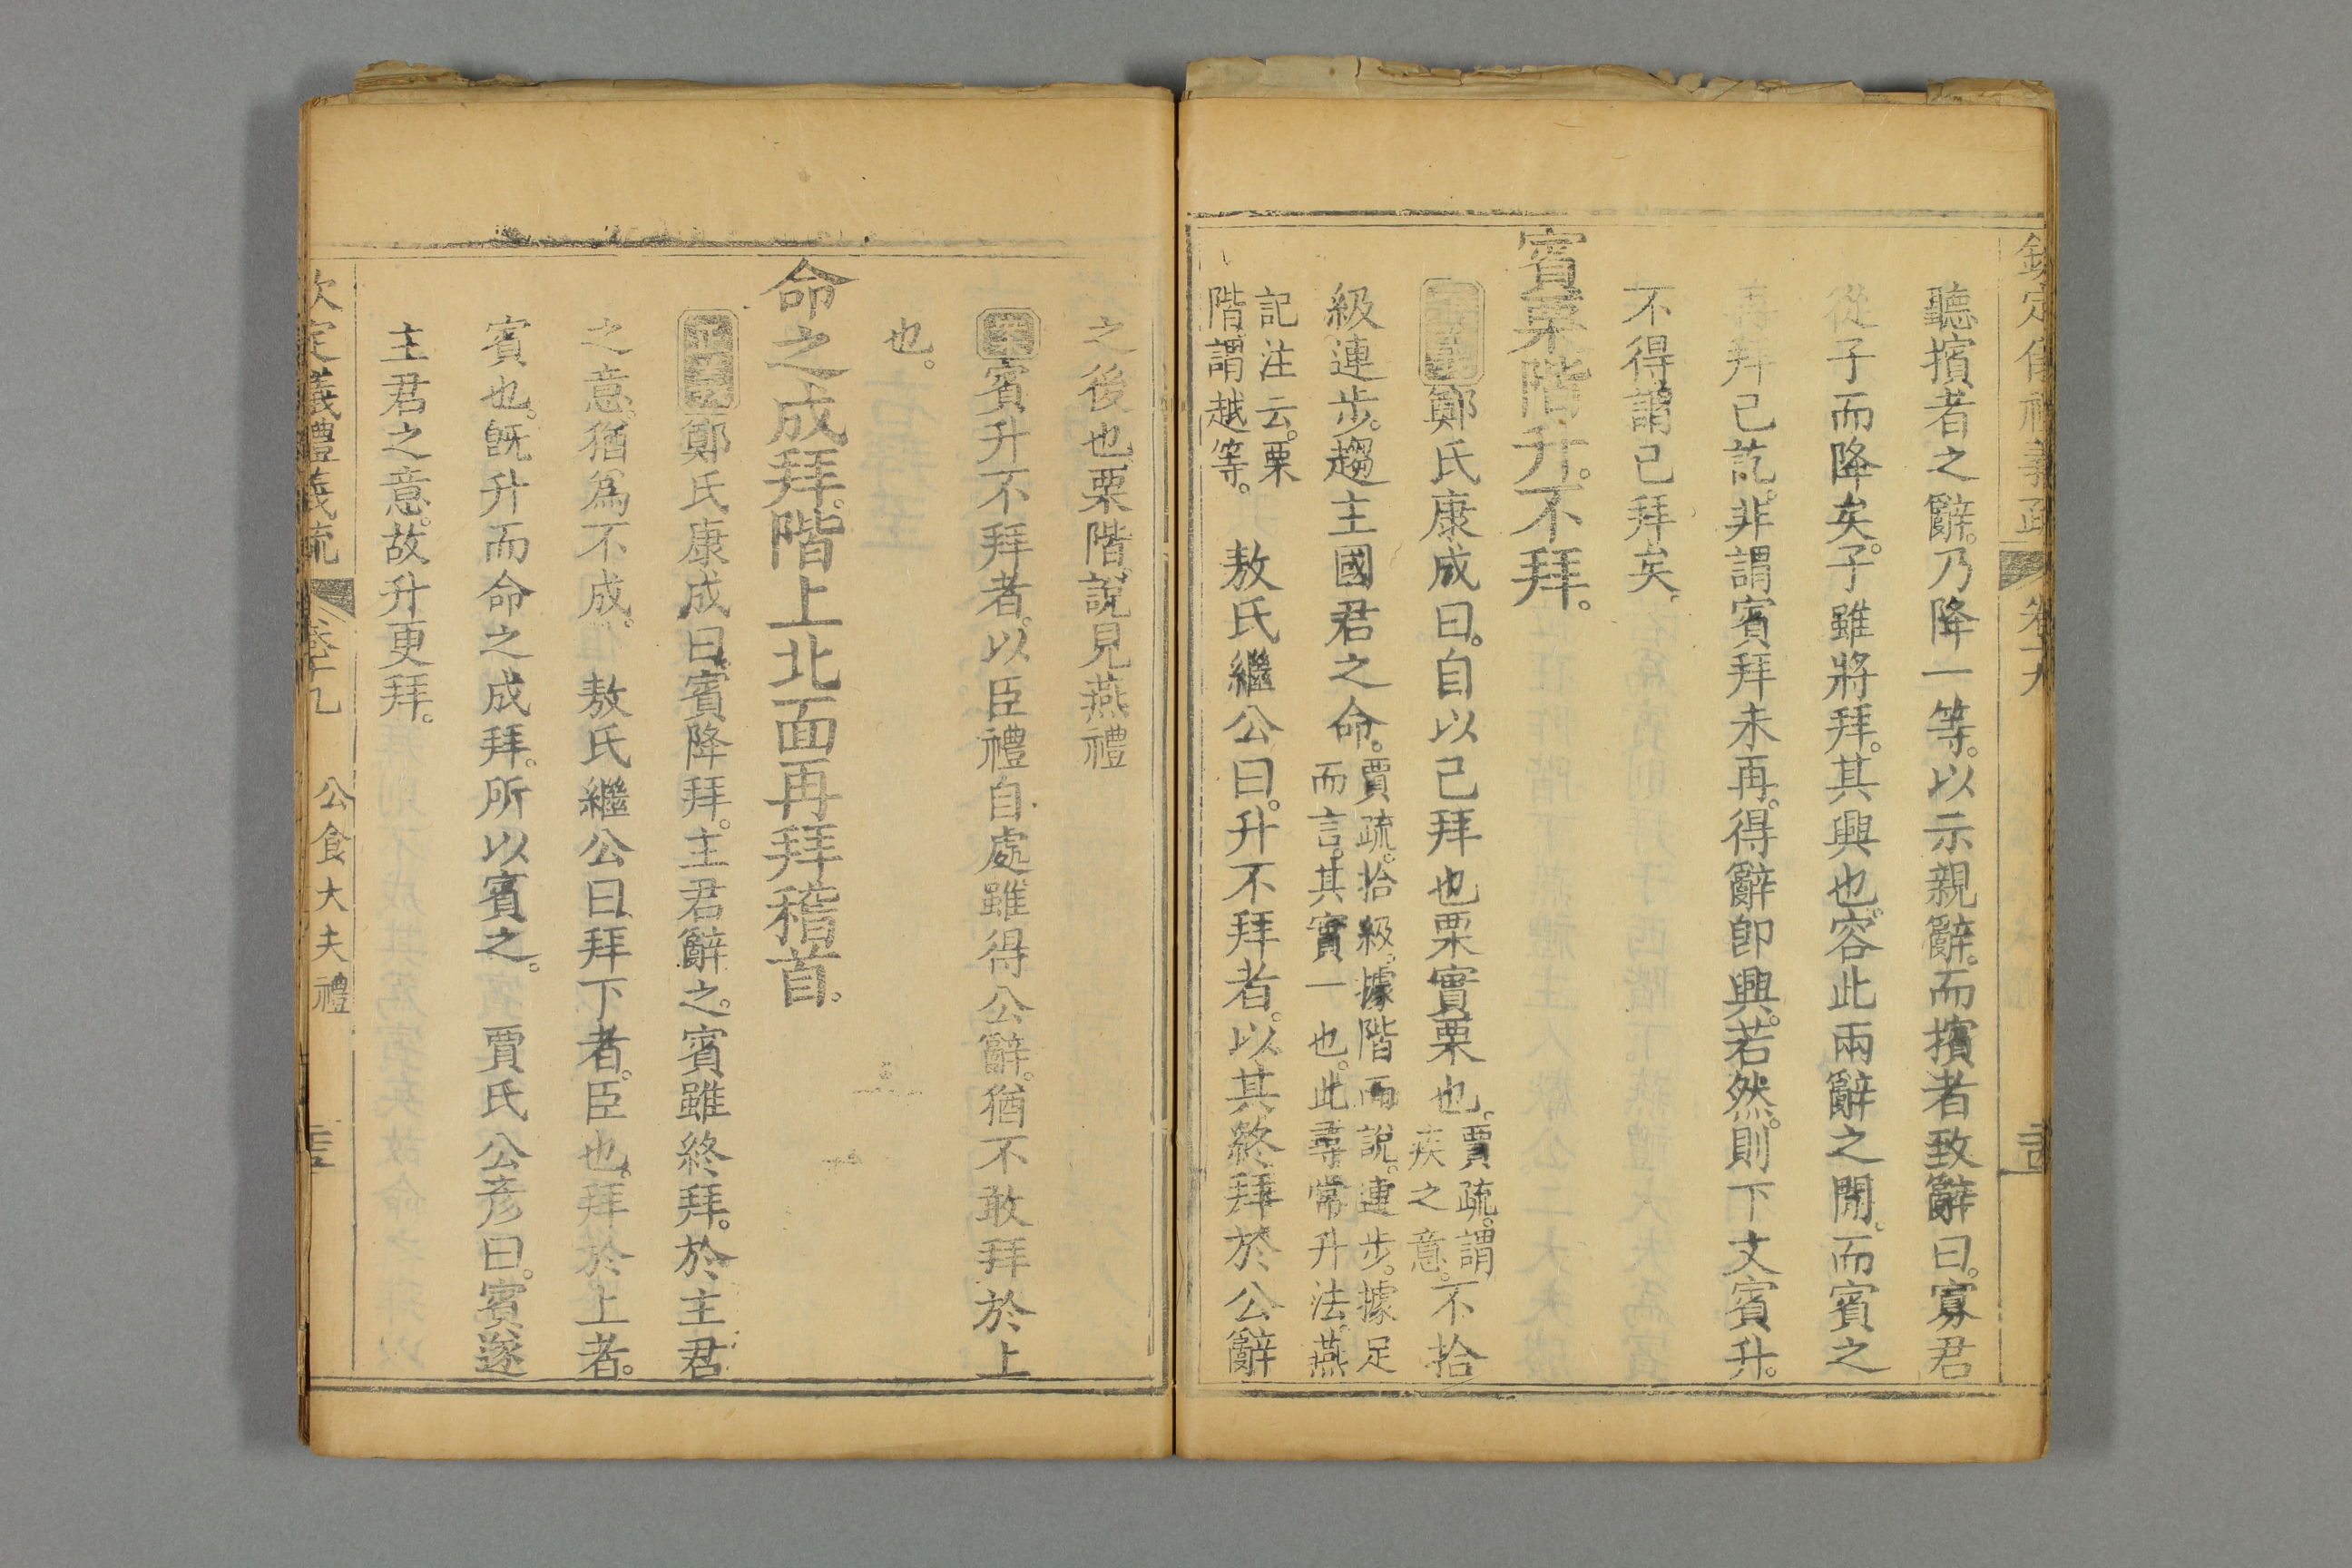 聽擯者之辭。乃降一等。以示親辭。而擯者致辭曰。寡君
從子而降矣。子雖將拜。其興也。容此兩辭之閒。而賓之
再拜已訖。非謂賓拜未再。得辭卽興。若然。則下文賓升。
不得謂已拜矣。
賓栗階升。不拜。
鄭氏康成曰。自以己拜也栗實栗也。賈疏。謂疾之意。不拾
級連步。趨主國君之命。賈疏。拾級。據階而說。連步。據足而言。其實一也。此尋常升法。燕
記注云。栗階。謂越等。 敖氏繼公曰。升不拜者。以其終拜於公辭
之後也栗階。說見燕禮
賓升不拜者。以臣禮自處雖得公辭。猶不敢拜於上
也。
命之成拜。階上北面再拜稽首。
正義鄭氏康成曰。賓降拜。主君辭之。賓雖終拜。於主君
之意。猶爲不成。 敖氏繼公曰拜下者。臣也。拜於上者。
賓也。旣升而命之成拜。所以賓之。 賈氏公彥曰。賓遂
主君之意。故升更拜。
欽定儀禮義疏 卷十九 公食大夫禮